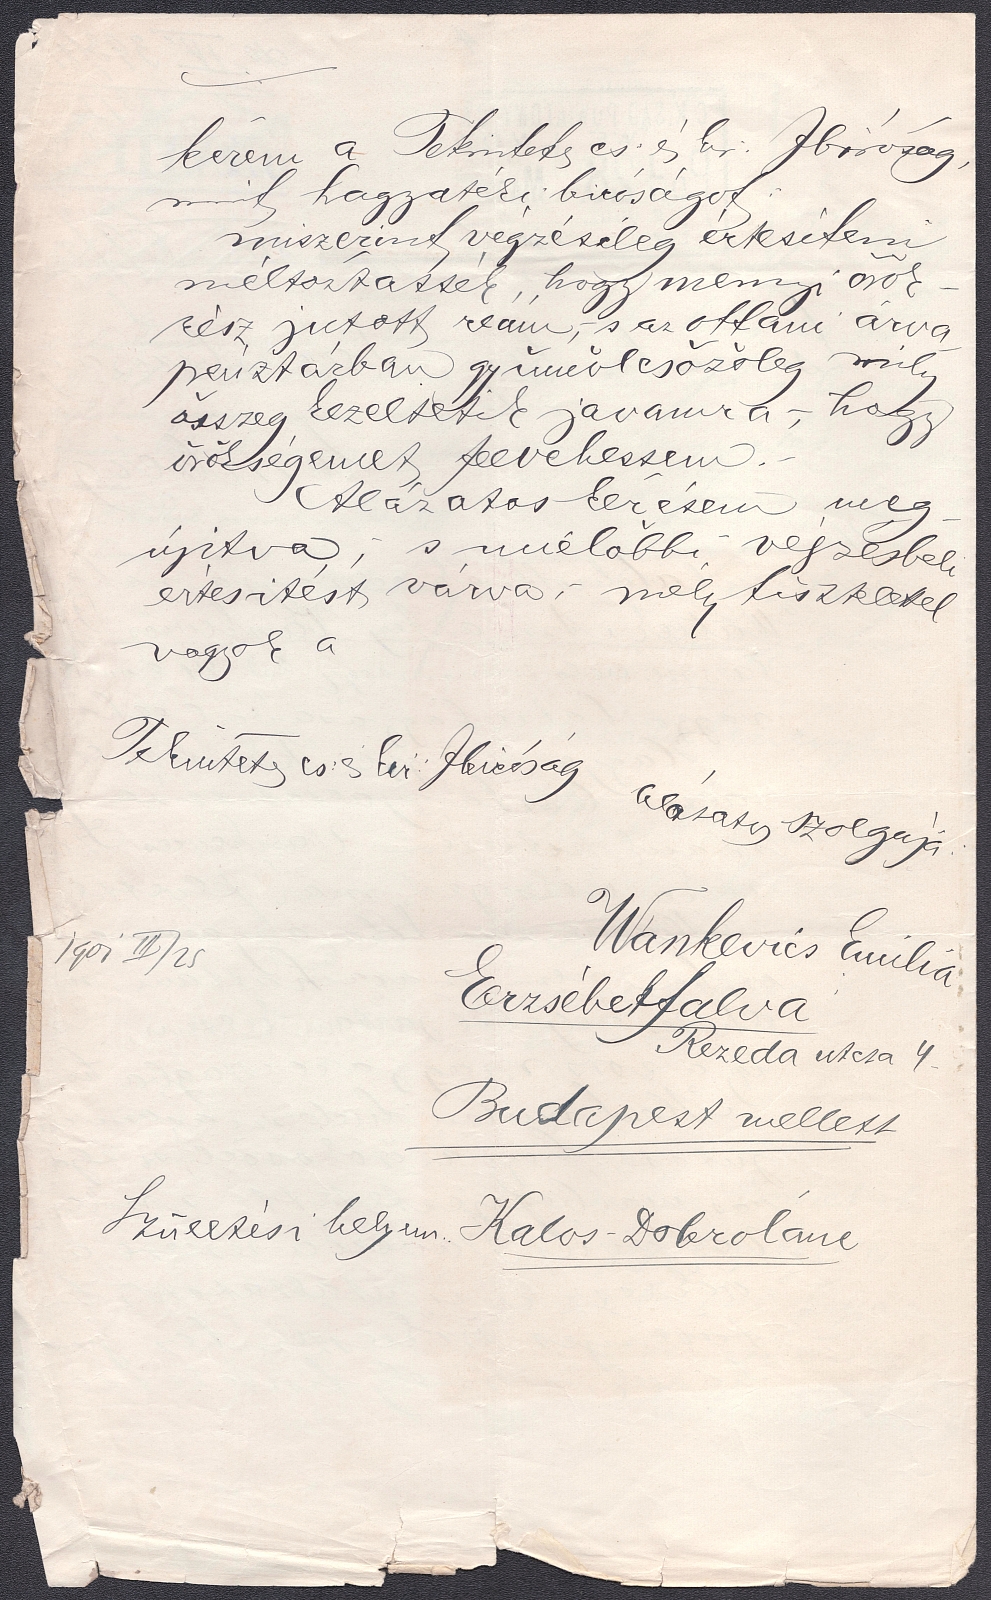 kérem a Tekintetes cs: és kir: Jbíróság,
mint hagyatéki bíróságot
miszerint végzésileg értesíteni
méltóztassék, hogy mennyi örök-
rész jutott reám, s az ottani árva
pénztárban gyümölcsözőleg mily
összeg kezeltetik javamra, hogy
örökségemet felvehessem.-
Alázatos kérésem meg-
újitva, s mielőbbi végzésbeli
értesitést várva,- mély tisztelettel
vagyok a
Tekintetes cs: és kir: Jbíróság
alázatos szolgája.
1901 III/25
Wankevics Emilia
Erzsébetfalva
Rezeda utcza 4.
Budapest mellett
Születési helyem. Kalos-Dobroláne